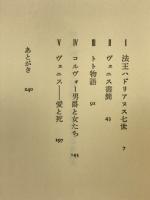 I 法王ハドリアヌス七世 7
II ヴェニス書簡 43
III トト物語 92
IV コルヴォー男爵と女たち 145
V ヴェニス——愛と死 197
あとがき 240